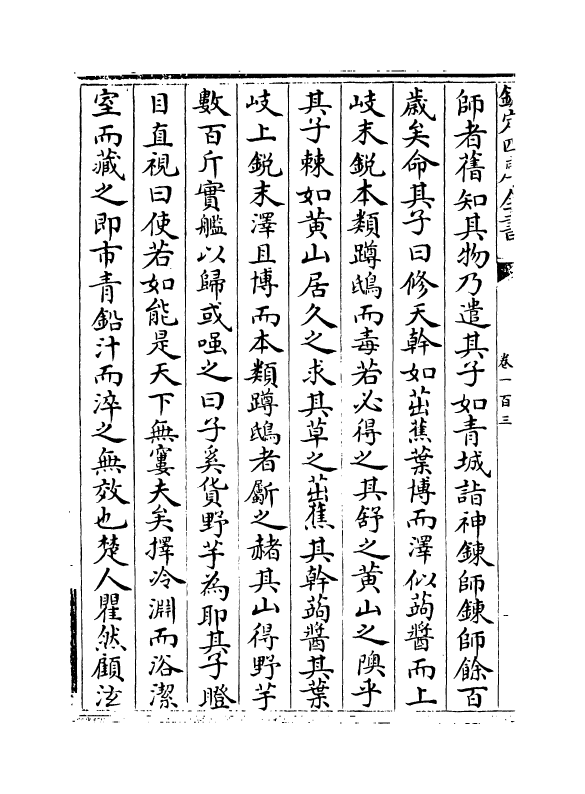 欽定四庫全書
卷一百三
師者舊知其物乃遣其子如青城詣神鍊師鍊師餘百
歲矣命其子曰修天幹如茁蕉葉博而澤似蒟醬而上
岐末銳本類蹲鴟而毒若必得之其舒之黄山之隩乎
其子棘如黄山居久之求其草之茁蕉其幹蒟醬其葉
岐上銳末澤且博而本類蹲鴟者斸之赭其山得野芋
數百斤實艦以歸或嗤之曰子奚貨野芋為耶其子瞪
目直視曰使若如能是天下無窶夫矣擇冷淵而浴潔
室而藏之即市青鉛汁而淬之無效也楚人瞿然顧泣